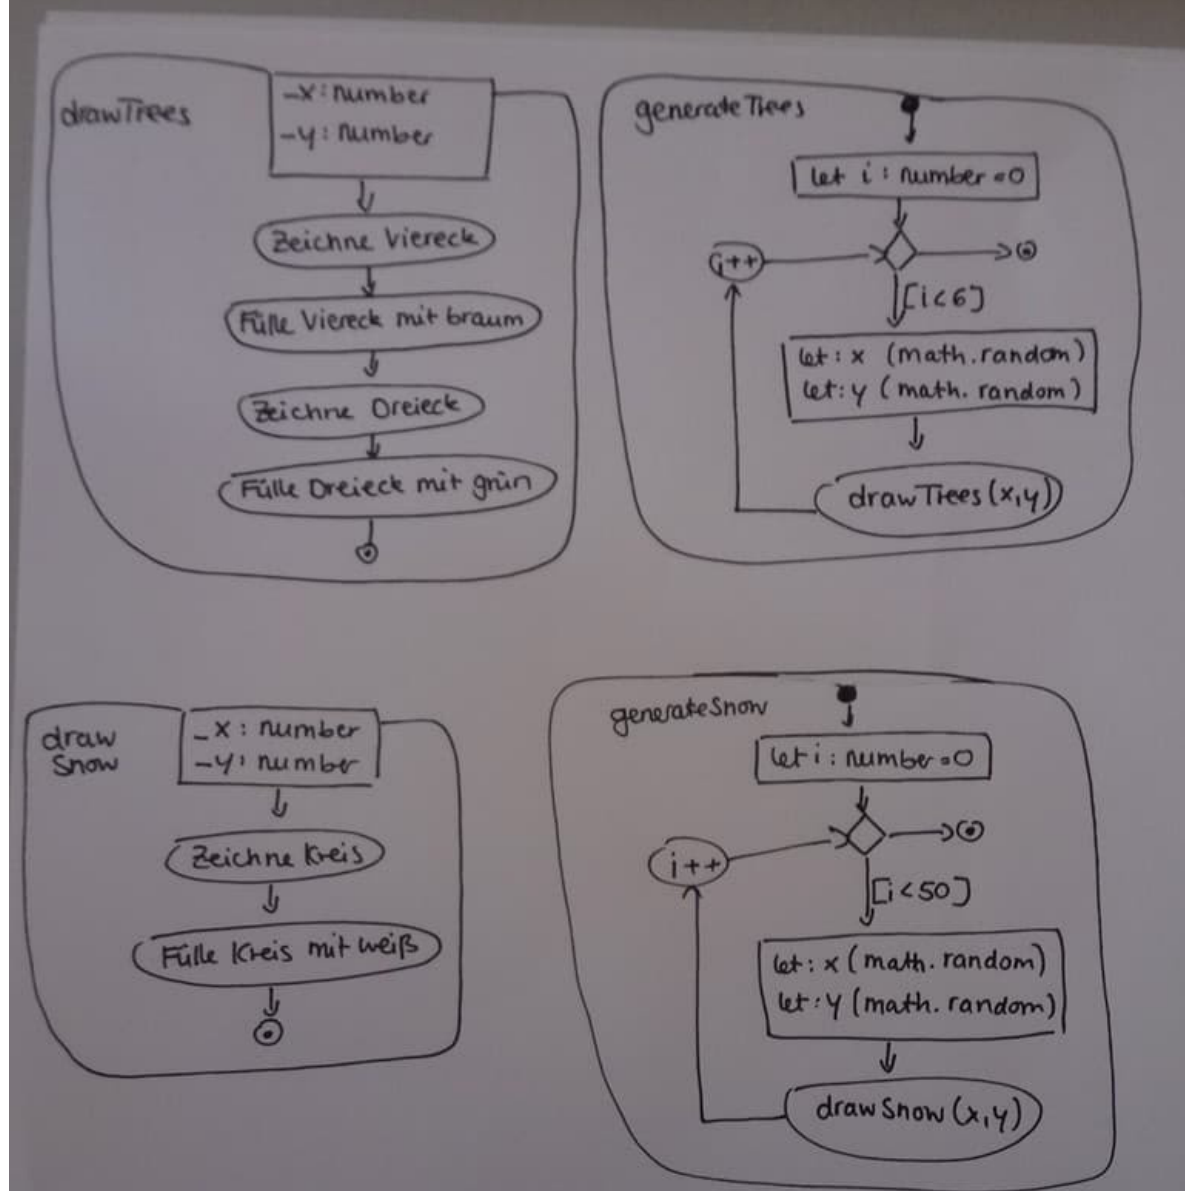 drawTrees
_x: number
_y: number
Zeichne Viereck
Fülle Viereck mit braum
Zeichne Dreieck
Fülle Dreieck mit grün
generateTrees
let i: number = 0
i++
[i<6]
let: x (math.random)
let: y (math.random)
drawTrees(x,y)
draw
Snow
_x: number
_y: number
Zeichne Kreis
Fülle Kreis mit weiß
generateSnow
let i: number = 0
i++
[i<50]
let: x (math.random)
let: y (math.random)
drawSnow(x,y)